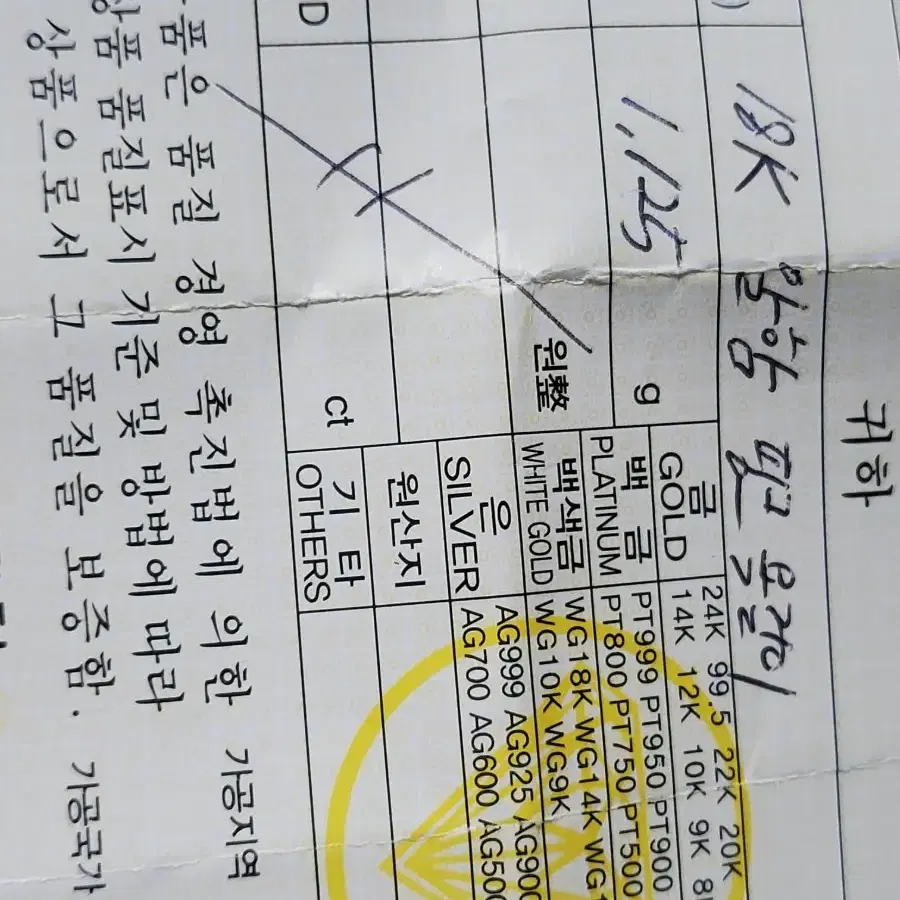 귀하
)
18K
1.125 g
원整
ct
금
GOLD
24K 99.5 22K 20K
14K 12K 10K 9K 8
백금
PLATINUM
PT999 PT950 PT900
PT800 PT750 PT500
백색금
WHITE GOLD
WG18K WG14K WG1
WG10K WG9K
은
SILVER
AG999 AG925 AG900
AG700 AG600 AG500
원산지
기타
OTHERS
D
품은 품질 경영 촉진법에 의한 가공지역
상품 품질표시 기준 및 방법에 따라
상품으로서 그 품질을 보증함. 가공국가